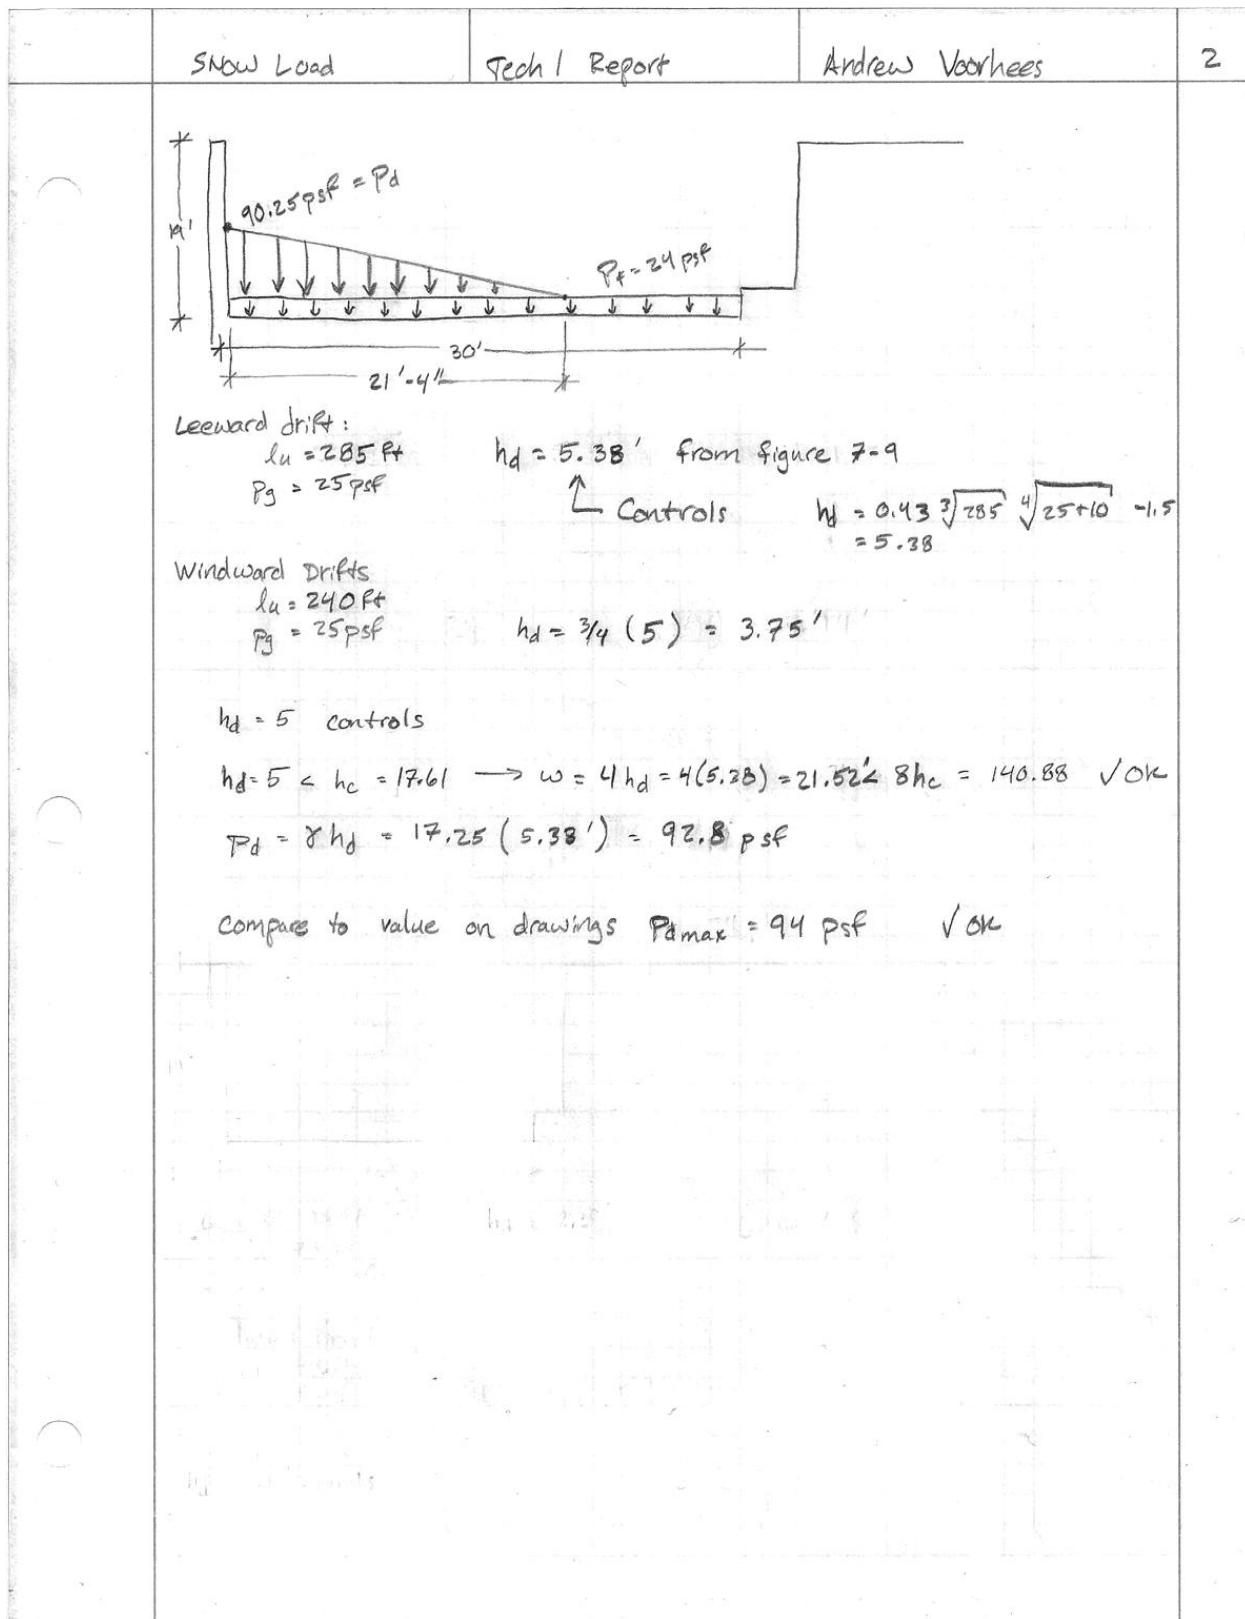 Snow Load Tech 1 Report Andrew Voorhees 2
90.25 psf = Pd
19'
Pf = 24 psf
30'
21'-4"
Leeward drift:
lu = 285 ft hd = 5.38' from figure 7-9
Pg = 25 psf
Controls hd = 0.43 ∛285 ∜25+10 -1.5
= 5.38
Windward Drifts
lu = 240 ft
Pg = 25 psf hd = 3/4 (5) = 3.75'
hd = 5 controls
hd = 5 < hc = 17.61 → w = 4hd = 4(5.38) = 21.52' < 8hc = 140.88 √ OK
Pd = γhd = 17.25 (5.38') = 92.8 psf
Compare to value on drawings Pdmax = 94 psf √ OK